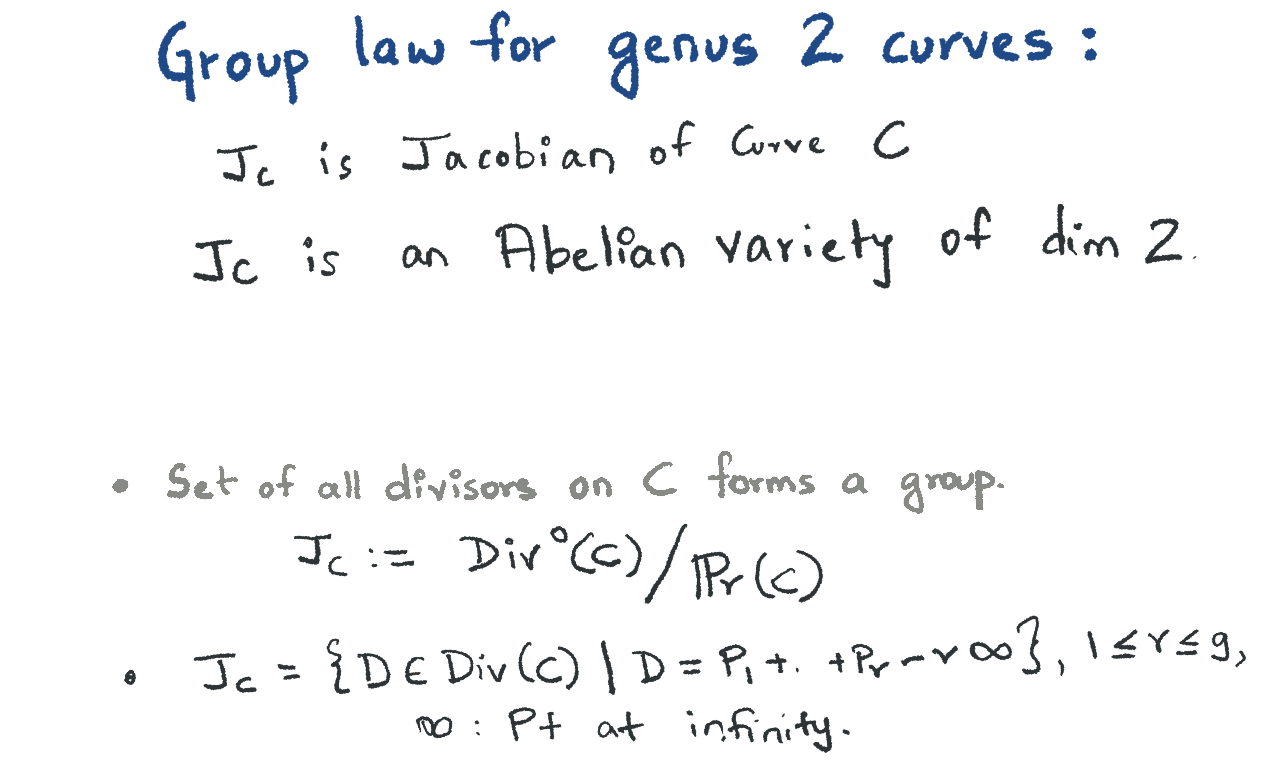 Group law for genus 2 curves :
J_C is Jacobian of Curve C
J_C is an Abelian variety of dim 2.
• Set of all divisors on C forms a group.
J_C := Div°(C)/Pr(C)
• J_C = {D ∈ Div(C) | D = P₁ + . + Pᵣ - r∞}, 1 ≤ r ≤ g,
∞ : Pt at infinity.